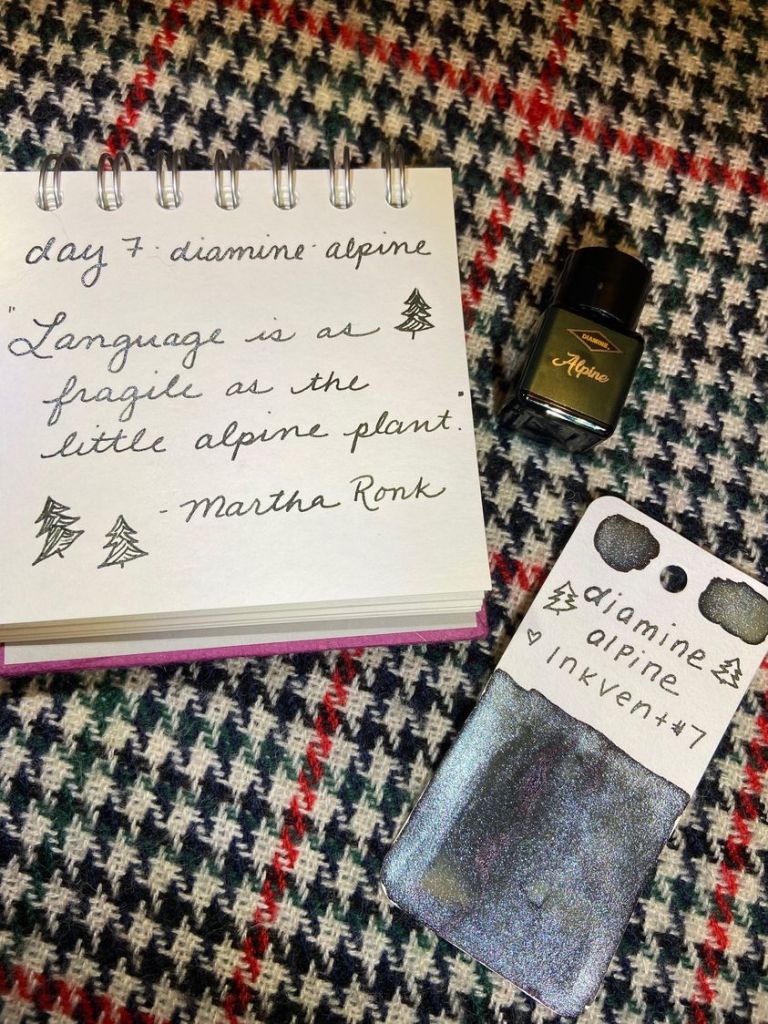 day 7 · diamine · alpine
"Language is as
fragile as the
little alpine plant."
- Martha Ronk
DIAMINE
Alpine
diamine
alpine
♡ Inkvent #7